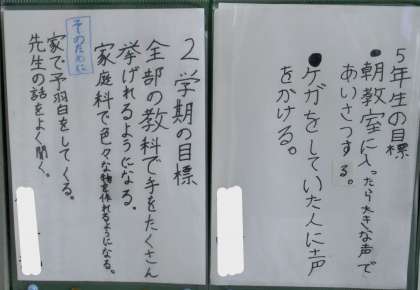 5年生の目標
●朝教室に入ったら大きな声で
あいさつする。
●ケガをしていた人に声
をかける。
2学期の目標
全部の教科で手をたくさん
挙げれるようになる。
家庭科で色々な物を作れるようになる。
そのために
家で予習をしてくる。
先生の話をよく聞く。